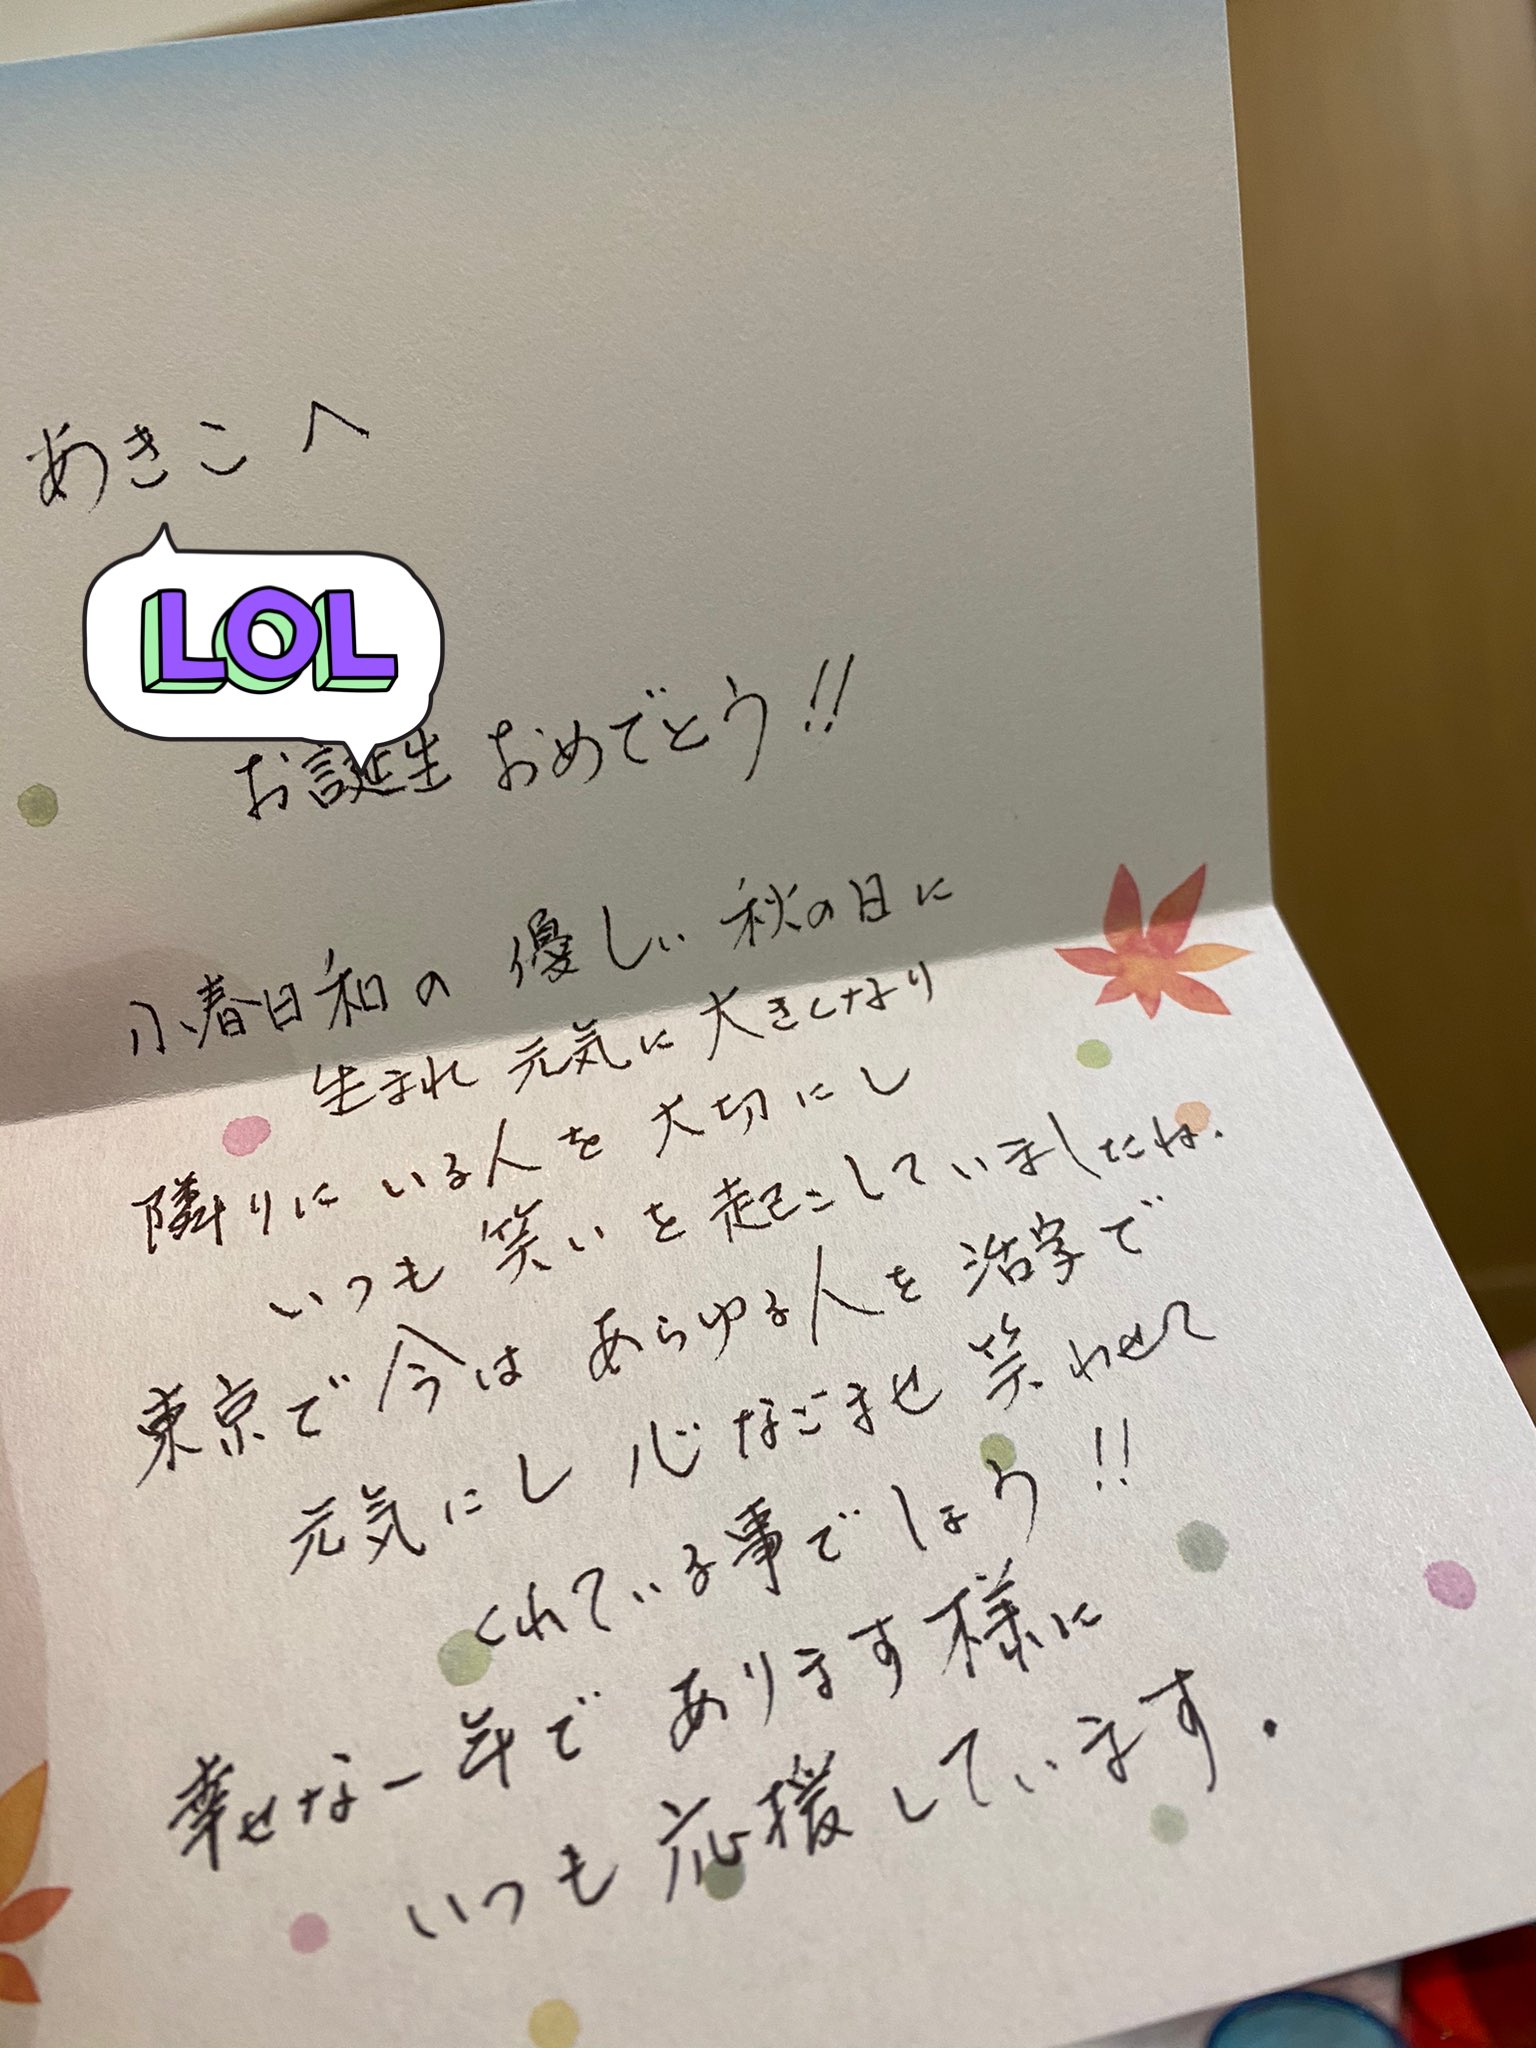 あきこへ
LOL
お誕生おめでとう!!
小春日和の 優しい 秋の日に
生まれ 元気に 大きくなり
隣りに いる人を 大切にし
いつも 笑いを 起こしていましたね.
東京で 今は あらゆる人を 活字で
元気にし 心 なごませ 笑わせて
くれている事でしょう!!
幸せな一年で あります様に
いつも 応援しています.